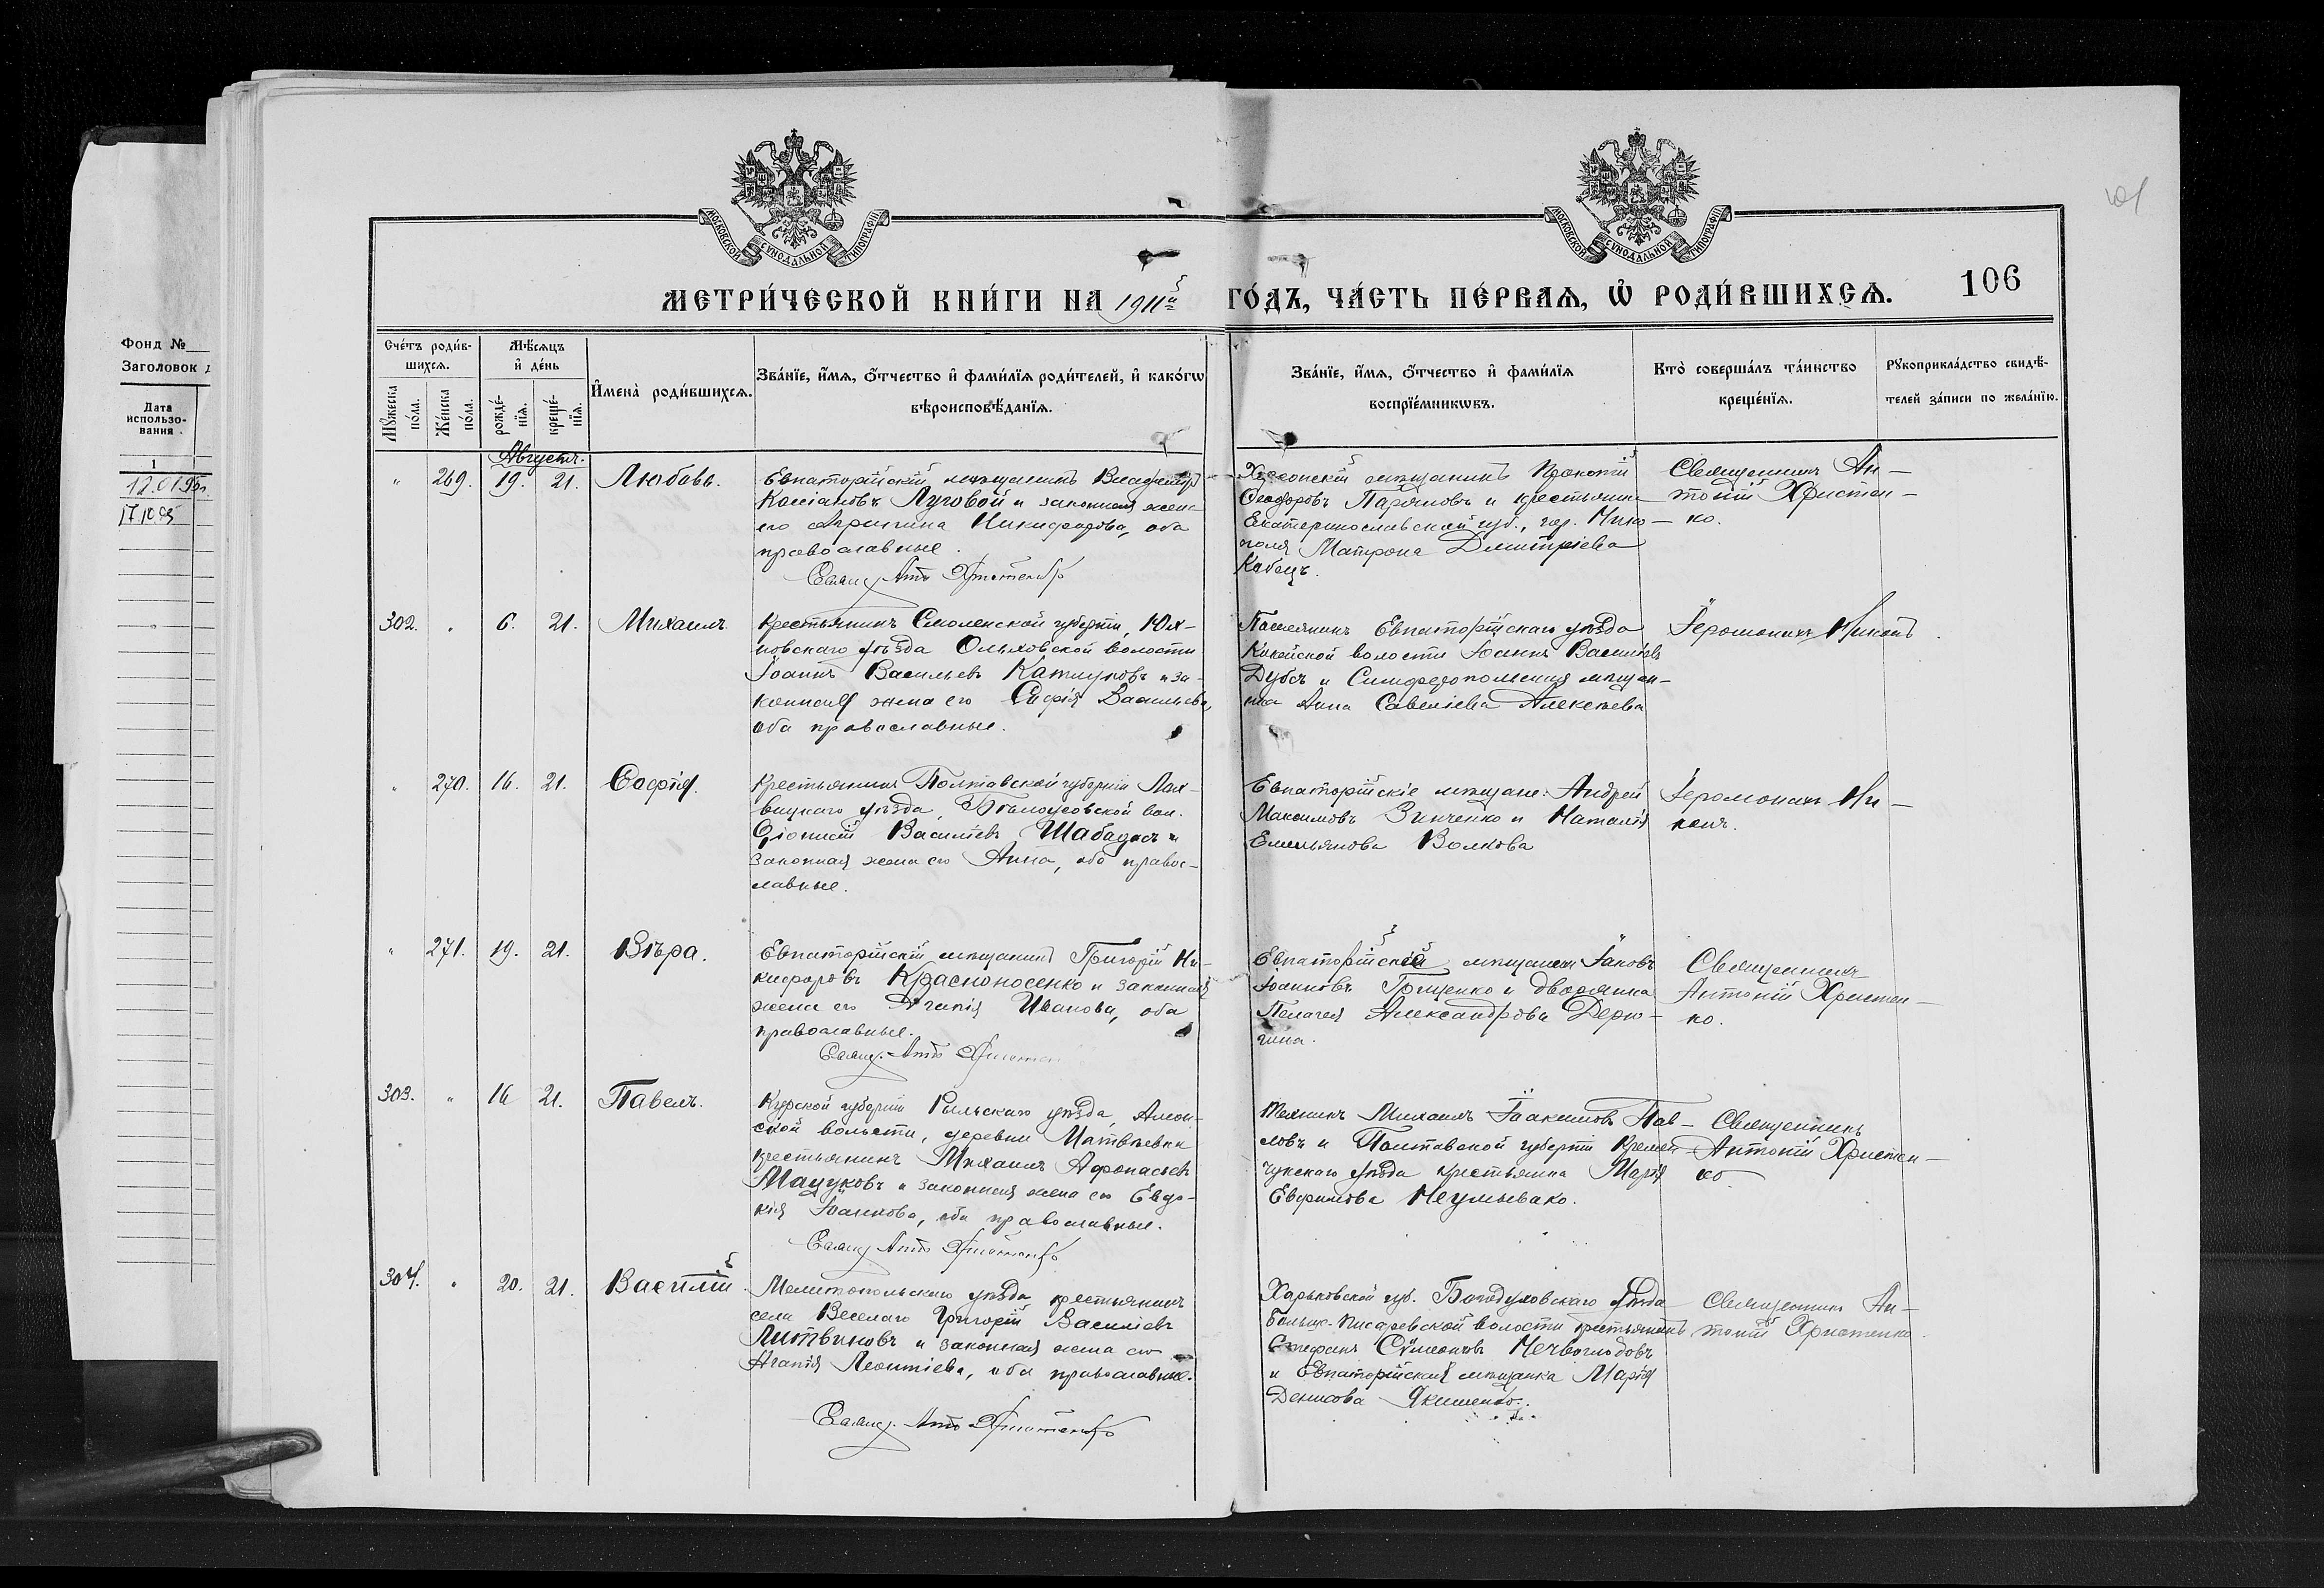 Фонд №
Заголовок
Дата
использо-
вания
1
12.01.95г.
17.10.95
МОСКОВСКОЙ СУНОДАЛЬНОЙ ТИПОГРАФІИ
МОСКОВСКОЙ СУНОДАЛЬНОЙ ТИПОГРАФІИ
МЕТРИ́ЧЕСКОЙ КНИ́ГИ НА 1911й ГО́ДЪ, ЧА́СТЬ ПЕ́РВАѦ, Ѡ РОДИ́ВШИХСѦ.
106
Сче́тъ роди́в-
шихсѧ.
Мѣ́сѧцъ
и де́нь
Му́жеска
по́ла.
Же́нска
по́ла.
рожде́-
нїѧ.
креще́-
нїѧ.
Имена̀ роди́вшихсѧ.
Зва́нїе, и́мѧ, о́тчество и фами́лїѧ роди́телей, и како́гѡ
вѣроисповѣ́данїѧ.
Зва́нїе, и́мѧ, о́тчество и фами́лїѧ
воспрїе́мникѡвъ.
Кто̀ соверша́лъ та́инство
креще́нїѧ.
Рукоприкла́дство свидѣ́-
телей за́писи по жела́нїю.
Августъ.
" 269. 19. 21. Любовь.
Евпаторійскій мѣщанинъ
Луговой и законная жена
его Агрипина Никифорова, оба
православные.
Херсонскій мѣщанинъ Прокопій
Ѳеодоровъ и крестьянка
Екатеринославской губ., гор. Нико-
поля Матрона Дмитріева
Кабецъ.
Священникъ Ан-
тоній Христен-
ко.
302. " 6. 21. Михаилъ
Крестьянинъ Смоленской губерніи, Юх-
новскаго уѣзда Ольховской волости
Іоаннъ Васильевъ и за-
конная жена его Софія Васильева,
оба православные.
Поселянинъ Евпаторійскаго уѣзда
волости Іоаннъ Васильевъ
Дубсъ и Симферопольская мѣщан-
ка Анна Савеліева Алексѣева
Іеромонахъ Никонъ.
" 270. 16. 21. Софія.
Крестьянинъ Полтавской губерніи Лох-
вицкаго уѣзда, Бѣлоусовской вол.
Діонисій Василіевъ и
законная жена его Анна, оба правос-
лавные.
Евпаторійскіе мѣщане: Андрей
Максимовъ Зинченко и Наталія
Емельянова Волкова
Іеромонахъ Ни-
конъ.
" 271. 19. 21. Вѣра.
Евпаторійскій мѣщанинъ Григорій Ни-
кифоровъ Красноносенко и законная
жена его Агапія Иванова, оба
православные.
Евпаторійскій мѣщанинъ Іаковъ
Іоанновъ Грищенко и дворянка
Пелагея Александрова Дерю-
гина.
Священникъ
Антоній Христен-
ко.
303. " 16 21. Павелъ.
Курской губерніи Рыльскаго уѣзда, Амон-
ской волости, деревни Матвѣевки
крестьянинъ Михаилъ Афонасьевъ
Мацуковъ и законная жена его Евдо-
кія Іоаннова, оба православные.
Техникъ Михаилъ Іоакимовъ Пав-
ловъ и Полтавской губерніи Кремен-
чукскаго уѣзда крестьянка Марія
Евфимова Неумывако.
Священникъ
Антоній Христен-
ко
304. " 20. 21. Василій.
Мелитопольскаго уѣзда крестьянинъ
села Веселаго Григорій Василіевъ
Литвиновъ и законная жена его
Агапія Леонтіева, оба православные.
Харьковской губ. Богодуховскаго уѣзда
Больше-Писаревской волости крестьянинъ
Стефанъ Сѵмеоновъ Нечволодовъ
и Евпаторійская мѣщанка Марія
Денисова Якименко.
Священникъ Ан-
тоній Христенко.